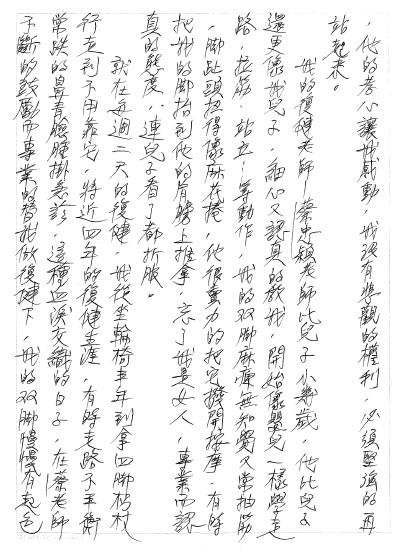 ，他的孝心讓我感動，我沒有悲觀的權利，必須堅強的再
站起來。
我的復健老師—蔡忠穎老師比兒子小幾歲，他比兒子
還更像我兒子，細心又認真的教我，開始像嬰兒一樣學走
路，拉筋，站立，等動作，我的双脚麻痺無知覺又常抽筋
，脚趾頭扭得像麻花捲，他很費力的把它撥開按摩，有時
把我的脚抬到他的肩膀上推拿，忘了我是女人，專業而認
真的態度，連兒子看了都折服。
就在每週二天的復健，我從坐輪椅半年到拿四脚枴杖
行走到不用靠它，將近四年的復健生涯，有時走路不平衡
常跌的鼻青臉腫掛急診，這種血淚交織的日子，在蔡老師
不斷的鼓勵而專業的替我做復健下，我的双脚慢慢有起色